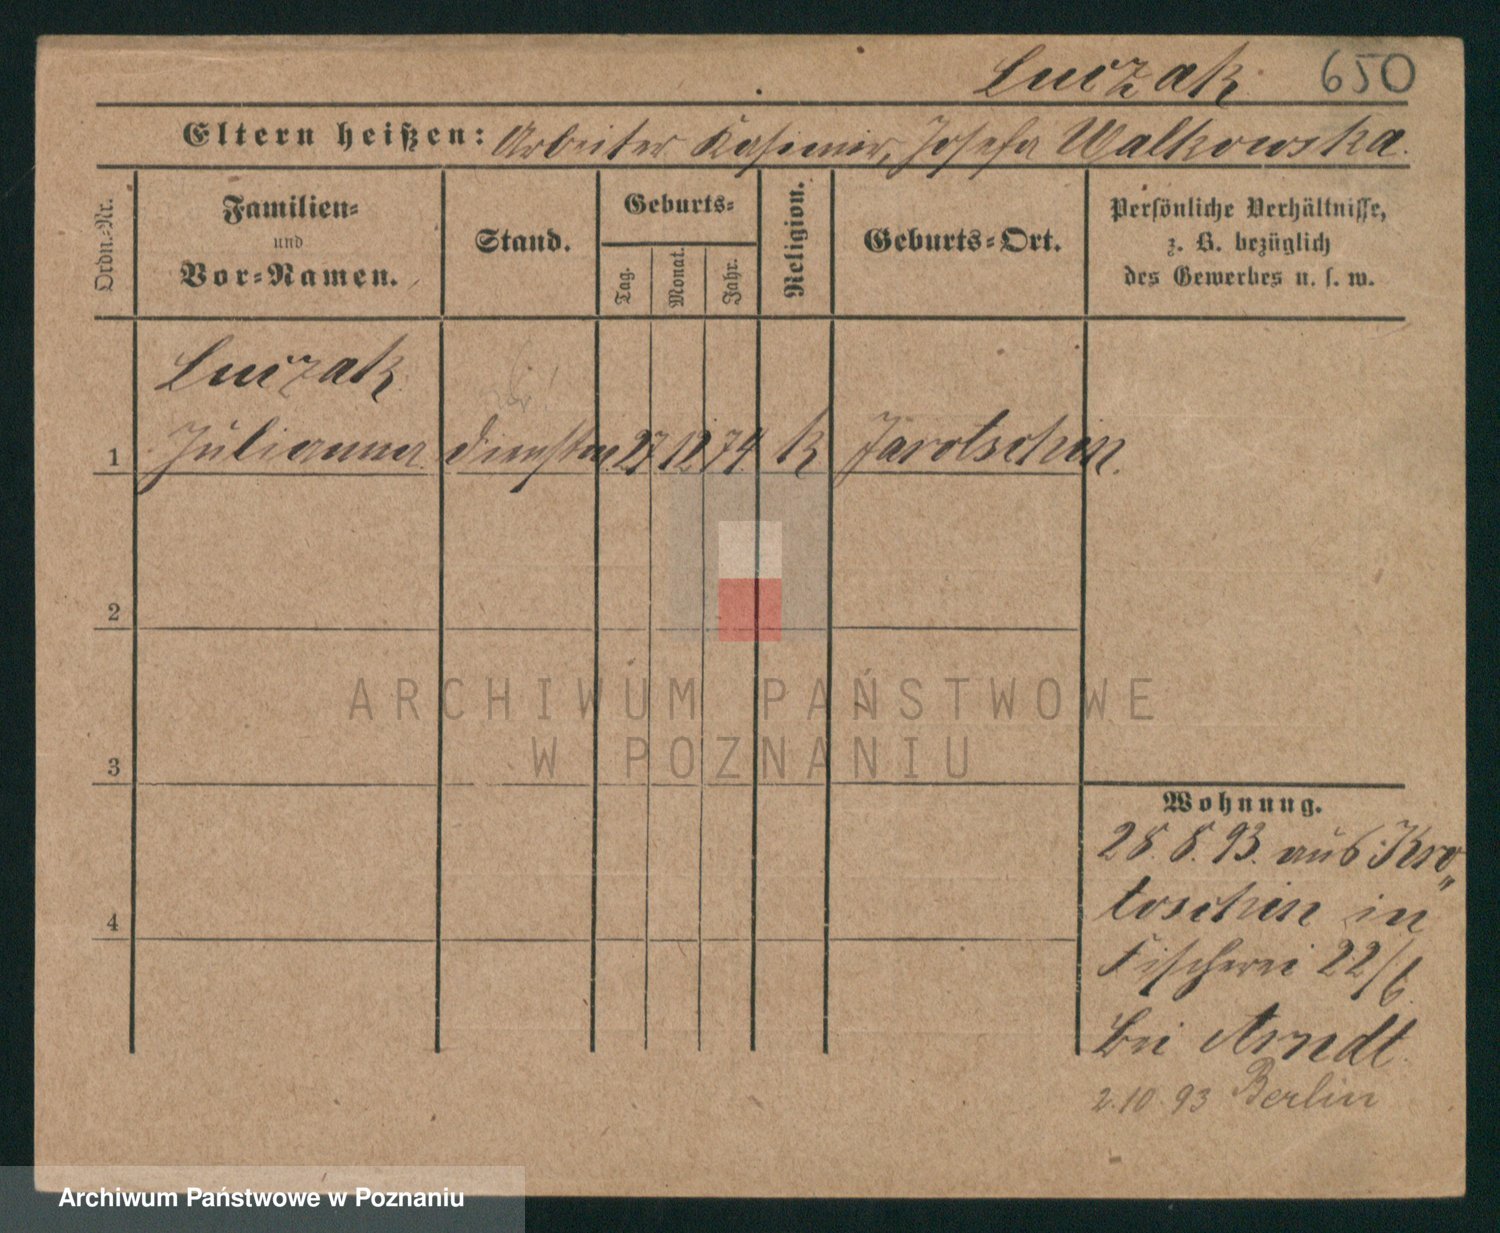 Luczak 650
Eltern heißen: Arbeiter Kasimir, Josefa Walkowska.
Ordn.-Nr.
Familien-
und
Vor-Namen.
Stand.
Geburts-
Tag.
Monat.
Jahr.
Religion.
Geburts-Ort.
Persönliche Verhältnisse,
z. B. bezüglich
des Gewerbes u. s. w.
Luczak
1 Julianna 27 12 74 k Jarotschin.
2
ARCHIWUM PAŃSTWOWE
W POZNANIU
3
Wohnung.
28. 8. 93. aus Kro„
toschin in
4
Fischerei 22/6.
bei Arndt.
2.10.93 Berlin
Archiwum Państwowe w Poznaniu